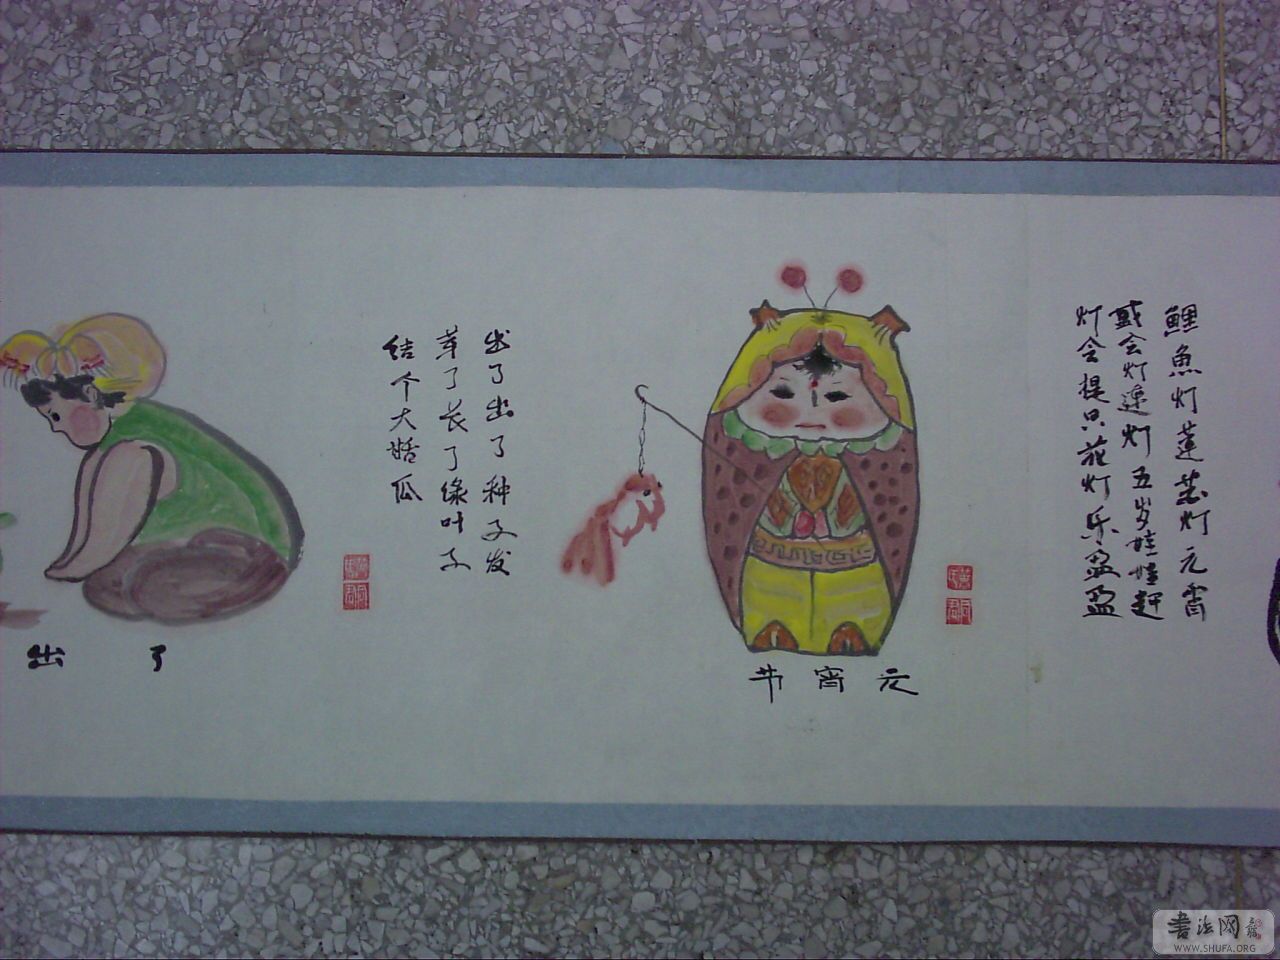 鲤魚灯蓮花灯元宵
会灯連灯五岁娃娃赶
灯会提只花灯乐盈盈
元宵节
出了出了种子发
芽了长了绿叶子
结个大甜瓜
出了
書法网
WWW.SHUFA.ORG